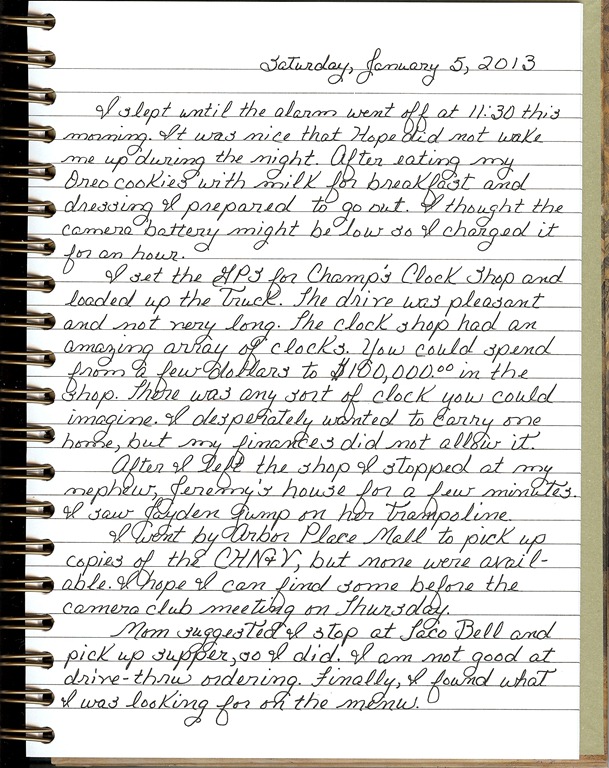 Saturday, January 5, 2013
I slept until the alarm went off at 11:30 this
morning. It was nice that Hope did not wake
me up during the night. After eating my
Oreo cookies with milk for breakfast and
dressing I prepared to go out. I thought the
camera battery might be low so I charged it
for an hour.
I set the GPS for Champ's Clock Shop and
loaded up the Truck. The drive was pleasant
and not very long. The clock shop had an
amazing array of clocks. You could spend
from a few dollars to $100,000.00 in the
shop. There was any sort of clock you could
imagine. I desperately wanted to carry one
home, but my finances did not allow it.
After I left the shop I stopped at my
nephew, Jeremy's house for a few minutes.
I saw Jayden jump on her Trampoline.
I went by Arbor Place Mall to pick up
copies of the CHN&V, but none were avail-
able. I hope I can find some before the
camera club meeting on Thursday.
Mom suggested I stop at Taco Bell and
pick up supper, so I did. I am not good at
drive-thru ordering. Finally, I found what
I was looking for on the menu.